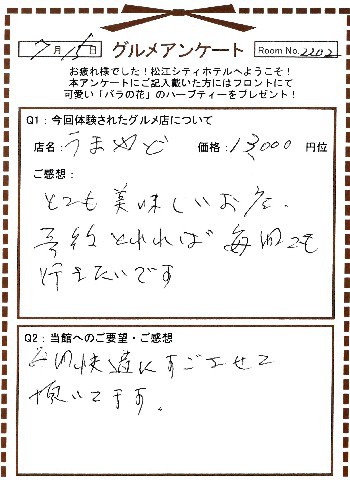 7月15日 グルメアンケート Room No. 2202
お疲れ様でした！松江シティホテルへようこそ！
本アンケートにご記入戴いた方にはフロントにて
可愛い「バラの花」のハーブティーをプレゼント！
Q1：今回体験されたグルメ店について
店名：うまやど 価格：13000 円位
ご感想：
とても美味しいお店、
予約とれれば毎回でも
行きたいです
Q2：当館へのご要望・ご感想
毎回快適にすごさせて
頂いてます。